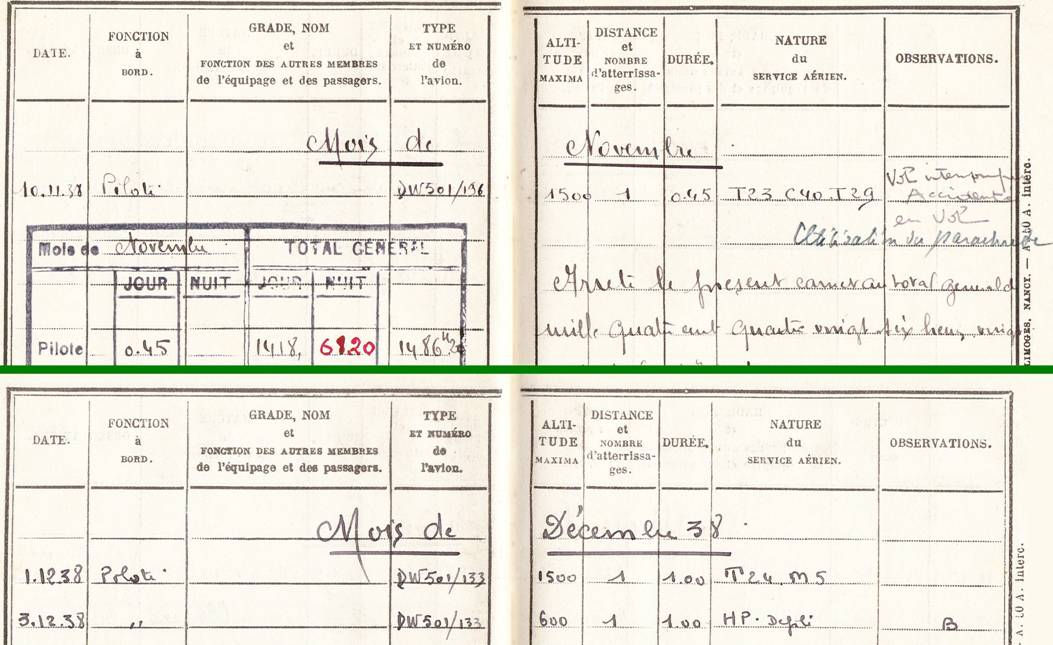 DATE. FONCTION à BORD. GRADE, NOM et FONCTION DES AUTRES MEMBRES de l'équipage et des passagers. TYPE ET NUMÉRO de l'avion. ALTI-TUDE MAXIMA DISTANCE et NOMBRE d'atterrissa-ges. DURÉE. NATURE du SERVICE AÉRIEN. OBSERVATIONS.
Mois de Novembre
10.11.38 Pilote DW501/136 1500 1 0.45 T23 C40 T29 Vol interrompu
Accident
en Vol
Utilisation du parachute
Mois de Novembre TOTAL GENERAL
JOUR NUIT JOUR NUIT
Arrêté le présent carnet au total general
mille quatre cent quatre vingt six heures vingt
Pilote 0.45 1418, 6820 1486h20
LIMOGES, NANCY. —
DATE. FONCTION à BORD. GRADE, NOM et FONCTION DES AUTRES MEMBRES de l'équipage et des passagers. TYPE ET NUMÉRO de l'avion. ALTI-TUDE MAXIMA DISTANCE et NOMBRE d'atterrissa-ges. DURÉE. NATURE du SERVICE AÉRIEN. OBSERVATIONS.
Mois de Décembre 38
1.12.38 Pilote DW501/133 1500 1 1.00 T24 M5
3.12.38 " DW501/133 600 1 1.00 HP. B